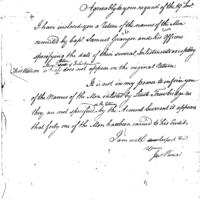 Agreeably to your request of the 19th Inst.
I have inclosed you a Return of the names of the Men
recruited by Capt. Samuel Granger and his Officers
specifying the date of their several Inlistments excepting
does not appear on the original Return.
It is not in my power to inform you
of the Names of the Men inlisted by Lieut. Trowbridge as
they are not specified by the Account Current it appears
that forty one of the Men have been carried to his Credit.
I am with
Yours